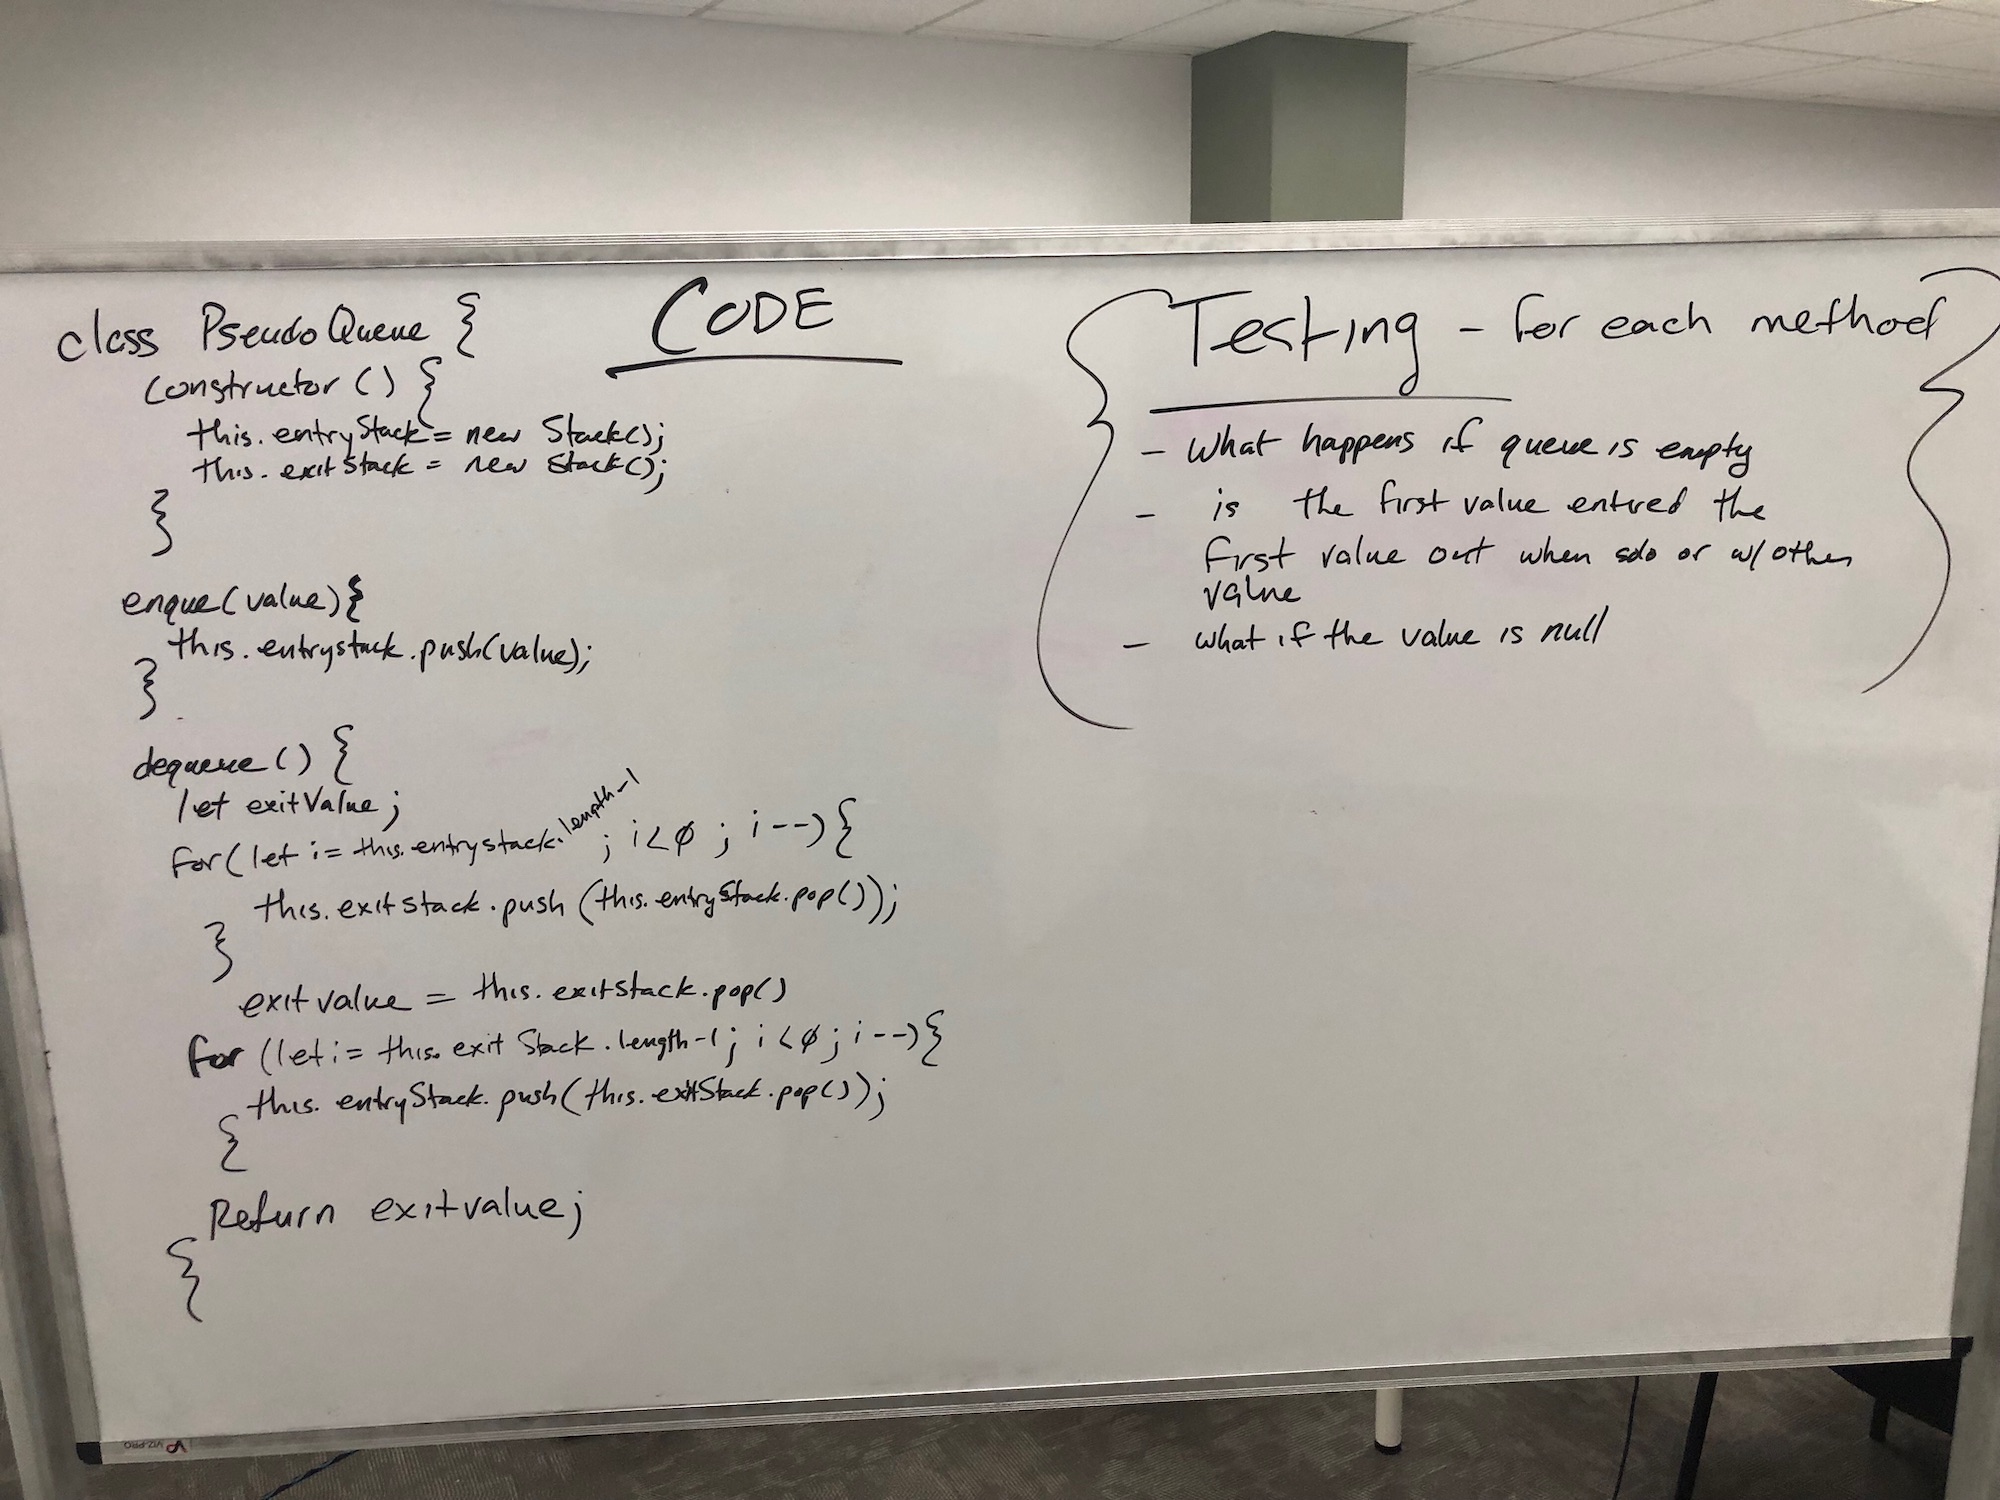 CODE
class PseudoQueue {
constructor () {
this.entryStack = new Stack();
this.exitStack = new Stack();
}
enque(value){
this.entrystack.push(value);
}
dequeue() {
let exitValue;
for(let i = this.entrystack.length-1; i<0; i--){
this.exitstack.push(this.entryStack.pop());
}
exitvalue = this.exitstack.pop()
for (let i = this.exitStack.length-1; i<0; i--){
this.entryStack.push(this.exitStack.pop());
{
Return exitvalue;
{
{ Testing - for each method }
- What happens if queue is empty
- is the first value entired the
first value out when solo or w/ other
value
- what if the value is null
VIZ-PRO